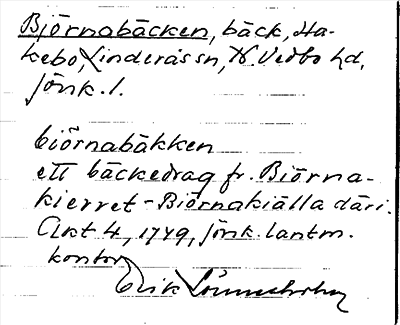 Björnabäcken, bäck, Ha-
kebo, Linderås sn, N. Vedbo hd,
Jönk. l.
biörnabäkken
ett bäckedrag fr. Biörna-
kierret - Biörnakiälla däri.
Akt 4, 1749, Jönk. lantm.
kontor
Erik